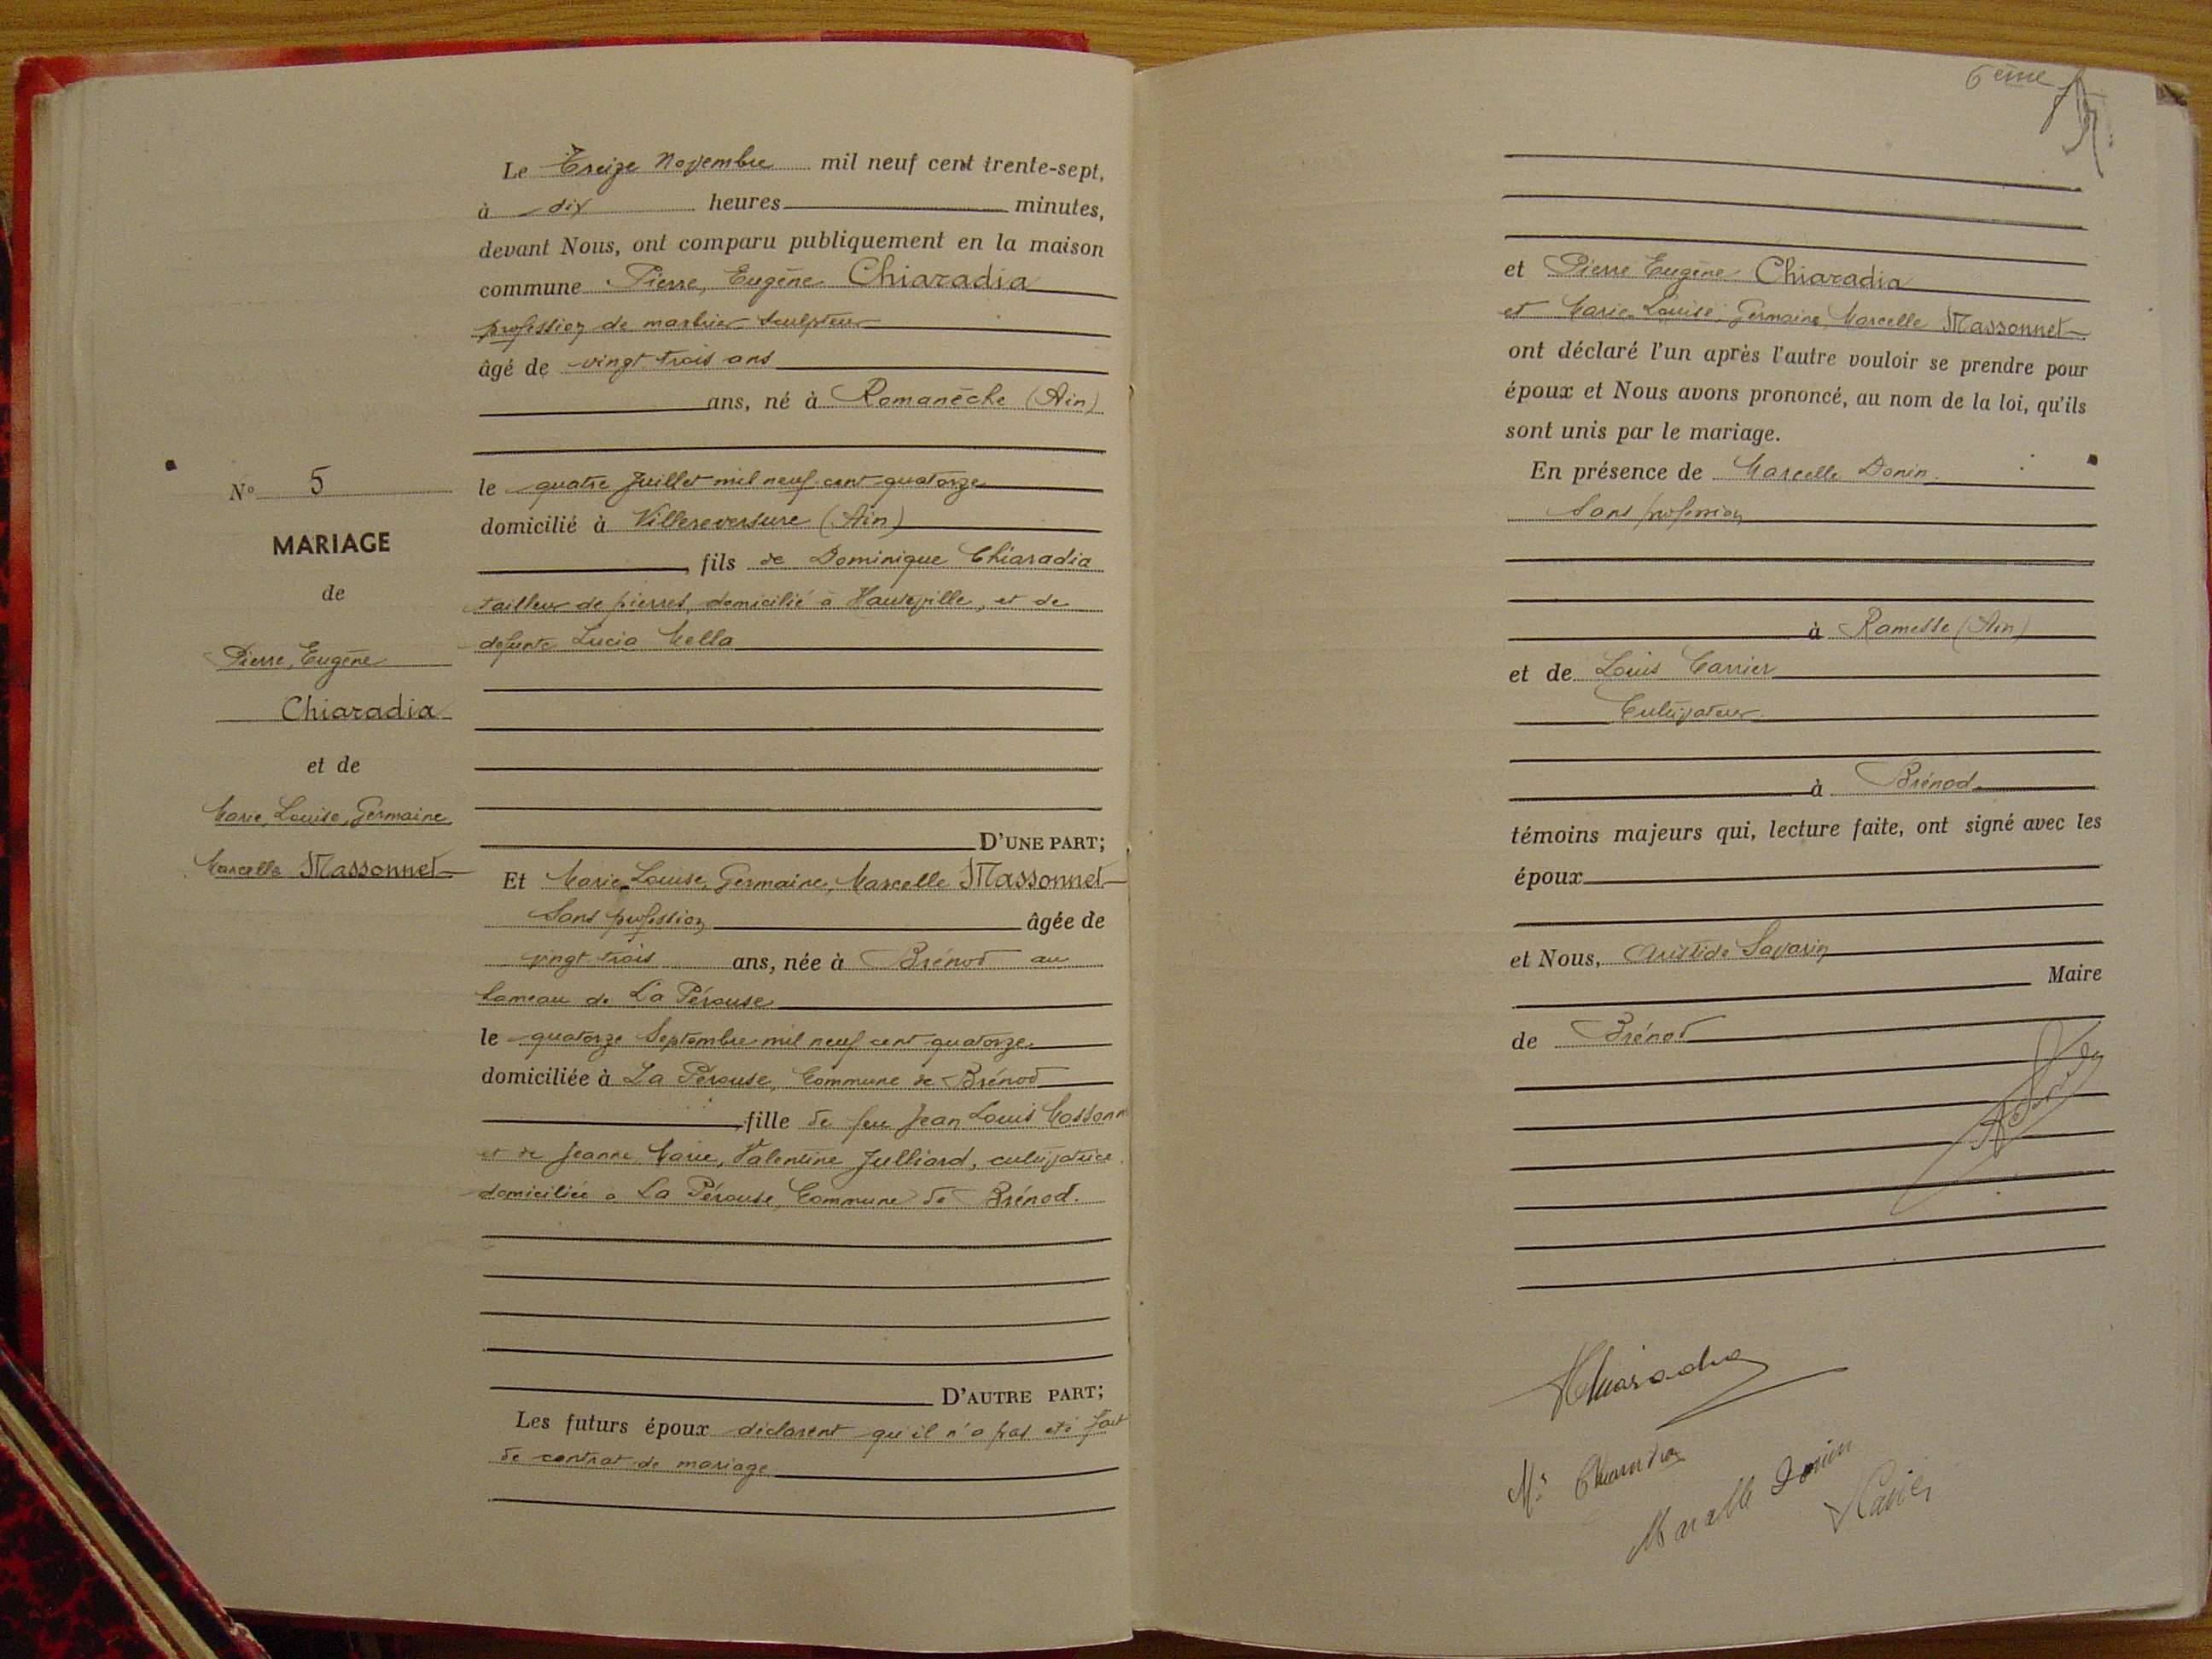 N° 5
MARIAGE
de
Pierre, Eugène
Chiaradia
et de
Marie, Louise, Germaine
Marcelle Massonnet
Le Treize Novembre mil neuf cent trente-sept,
à dix heures minutes,
devant Nous, ont comparu publiquement en la maison
commune Pierre, Eugène Chiaradia
profession de marbrier sculpteur
âgé de vingt trois ans
ans, né à Romanèche (Ain)
le quatre Juillet mil neuf cent quatorze
domicilié à Villereversure (Ain)
fils de Dominique Chiaradia
tailleur de pierres, domicilié à Hauteville, et de
defunte Lucia Mella
D'UNE PART;
Et Marie, Louise, Germaine, Marcelle Massonnet
Sans profession âgée de
vingt trois ans, née à Brénod au
hameau de La Pérouse
le quatorze Septembre mil neuf cent quatorze
domiciliée à La Pérouse, Commune de Brénod
fille de feu Jean Louis Massonn
et de Jeanne, Marie, Valentine Julliard, cultivatrice
domiciliée à La Pérouse, Commune de Brénod.
D'AUTRE PART;
Les futurs époux déclarent qu'il n'a pas été fait
de contrat de mariage
6ème
et Pierre Eugène Chiaradia
et Marie Louise, Germaine, Marcelle Massonnet
ont déclaré l'un après l'autre vouloir se prendre pour
époux et Nous avons prononcé, au nom de la loi, qu'ils
sont unis par le mariage.
En présence de Marcelle Donin
Sans profession
à Ramasse (Ain)
et de Louis Carrier
Cultivateur
à Brénod
témoins majeurs qui, lecture faite, ont signé avec les
époux
et Nous, Aristide Savarin
Maire
de Brénod
Chiaradia
Chiaradia
Marcelle Donin